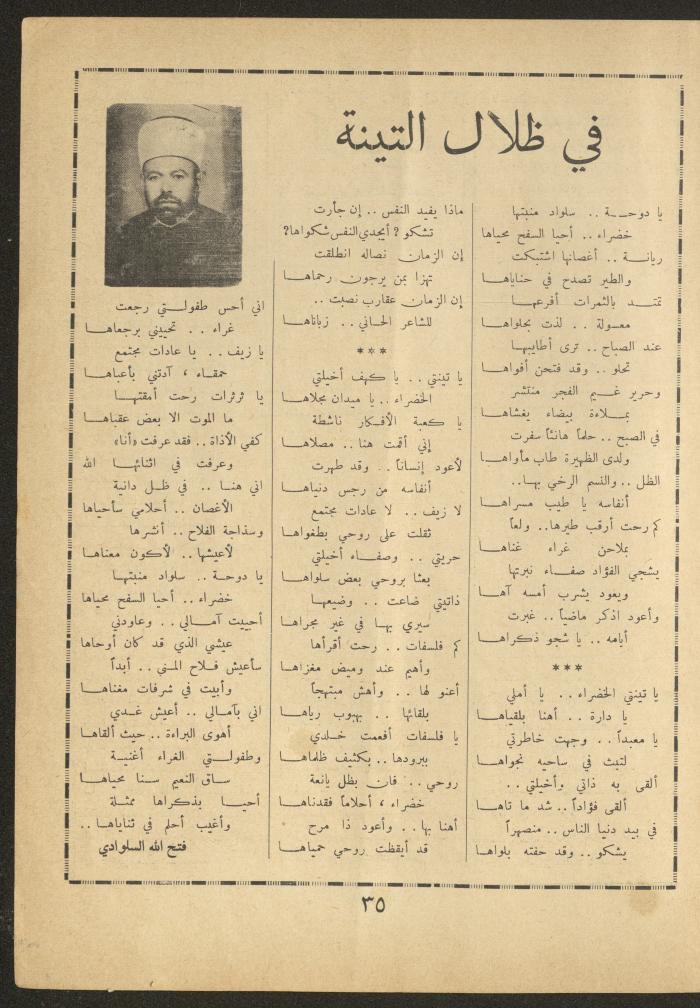 في ظلال التينة
يا دوحــة .. سلواد منبتها
خضراء .. أحيا السفح محياها
ريانة .. أغصانها اشتبكت
والطير تصدح في حناياها
تمتــد بالثمرات أفرعهــا
معسولة .. لذت بجلواهــا
عند الصباح .. ترى أطايبهــا
تحلو .. وقد فتحن أفواهــا
وحرير غــيم الفجر منتشر
بمــلاءة بيضاء يغشاهــا
في الصبح .. حلماً هانئاً سفرت
ولدى الظهيرة طاب مأواهــا
الظل .. والنسم الرخي بهــا..
أنفاسه يا طيب مسراهــا
كم رحت أرقب طيرهــا.. ولعاً
بملاحن غراء غناهــا
يشجي الفؤاد صفــاء نبرتها
ويعود يشرب أمسه آهــا
وأعود اذكر ماضياً.. غبرت
أيامه .. يا شجو ذكراهــا
***
يا تينتي الخضراء .. يا أملي
يا دارة .. أهنا بلقياهــا
يا معبداً .. وجهت خاطرتي
لتبث في ساحيه نجواهــا
ألقى به ذاتي وأخيلتي ..
ألقى فؤاداً.. شد ما تاهــا
في بيد دنيا الناس.. منصهراً
يشكو .. وقد حفته بلواهــا
ماذا يفيد النفس .. إن جأرت
تشكو ? أيجدي النفس شكواها?
إن الزمان نصاله انطلقت
تهزا بمن يرجون رحماهــا
إن الزمان عقارب نصبت ..
للشاعر الحــاني .. زباناهــا
***
يا تينتي .. يا كهف أخيلتي
الخضراء .. يا ميدان مجلاهــا
يا كعبة الأفــكار ناشطة
إني أقمت هنا .. مصلاهــا
لأعود إنساناً .. وقد طهرت
أنفاسه من رجس دنياهــا
لا زيف .. لا عادات مجتمع
ثقلت على روحي بطغواهــا
حريتي .. وصفــاء أخيلتي
بعثا بروحي بعض سلواهــا
ذاتيتي ضاعت .. وضيعهــا
سيري بها في غير مجراهــا
كم فلسفات .. رحت أقرأها
وأهيم عند وميض مغزاهــا
أعنو لها .. وأهش مبتهجاً
بلقائها .. بهبوب رياهــا
يا فلسفات أفعمت خــلدي
ببرودها .. بكثيف ظلماهــا
روحي .. فان بظل يانعة
خضراء ، أحلاماً فقدناهــا
أهنا بها .. وأعود ذا مرح
قد أيقظت روحي حمياهــا
اني أحس طفولــتي رجعت
غراء .. تحييني برجعاهــا
يا زيف .. يا عادات مجتمع
حمقــاء ، آدتني بأعباهــا
يا ثرثرات رحت أمقتهــا
ما الموت الا بعض عقباهــا
كفي الأذاة .. فقد عرفت «أنا»
وعرفت في اثنائهــا الله
اني هنــا .. في ظــل دانية
الأغصان .. أحلامي سأحياها
وسذاجة الفلاح .. أنشرها
لأعيشها.. لأكون معناهــا
يا دوحة .. سلواد منبتهــا
خضراء .. أحيا السفح محياها
أحييت آمــالي .. وعاودني
عيشي الذي قد كان أوحاها
سأعيش فــلاح المنى .. أبداً
وأبيت في شرفات مغناهــا
اني بآمــالي .. أعيش غــدي
أهوى البراءة .. حيث ألقاهــا
وطفولــتي الغراء أغنيــة
ســاق النعيم سنــا محياهــا
أحيــا بذكراها ممثــلة
وأغيب أحلم في ثناياهــا ..
فتح الله السلوادي
٣٥